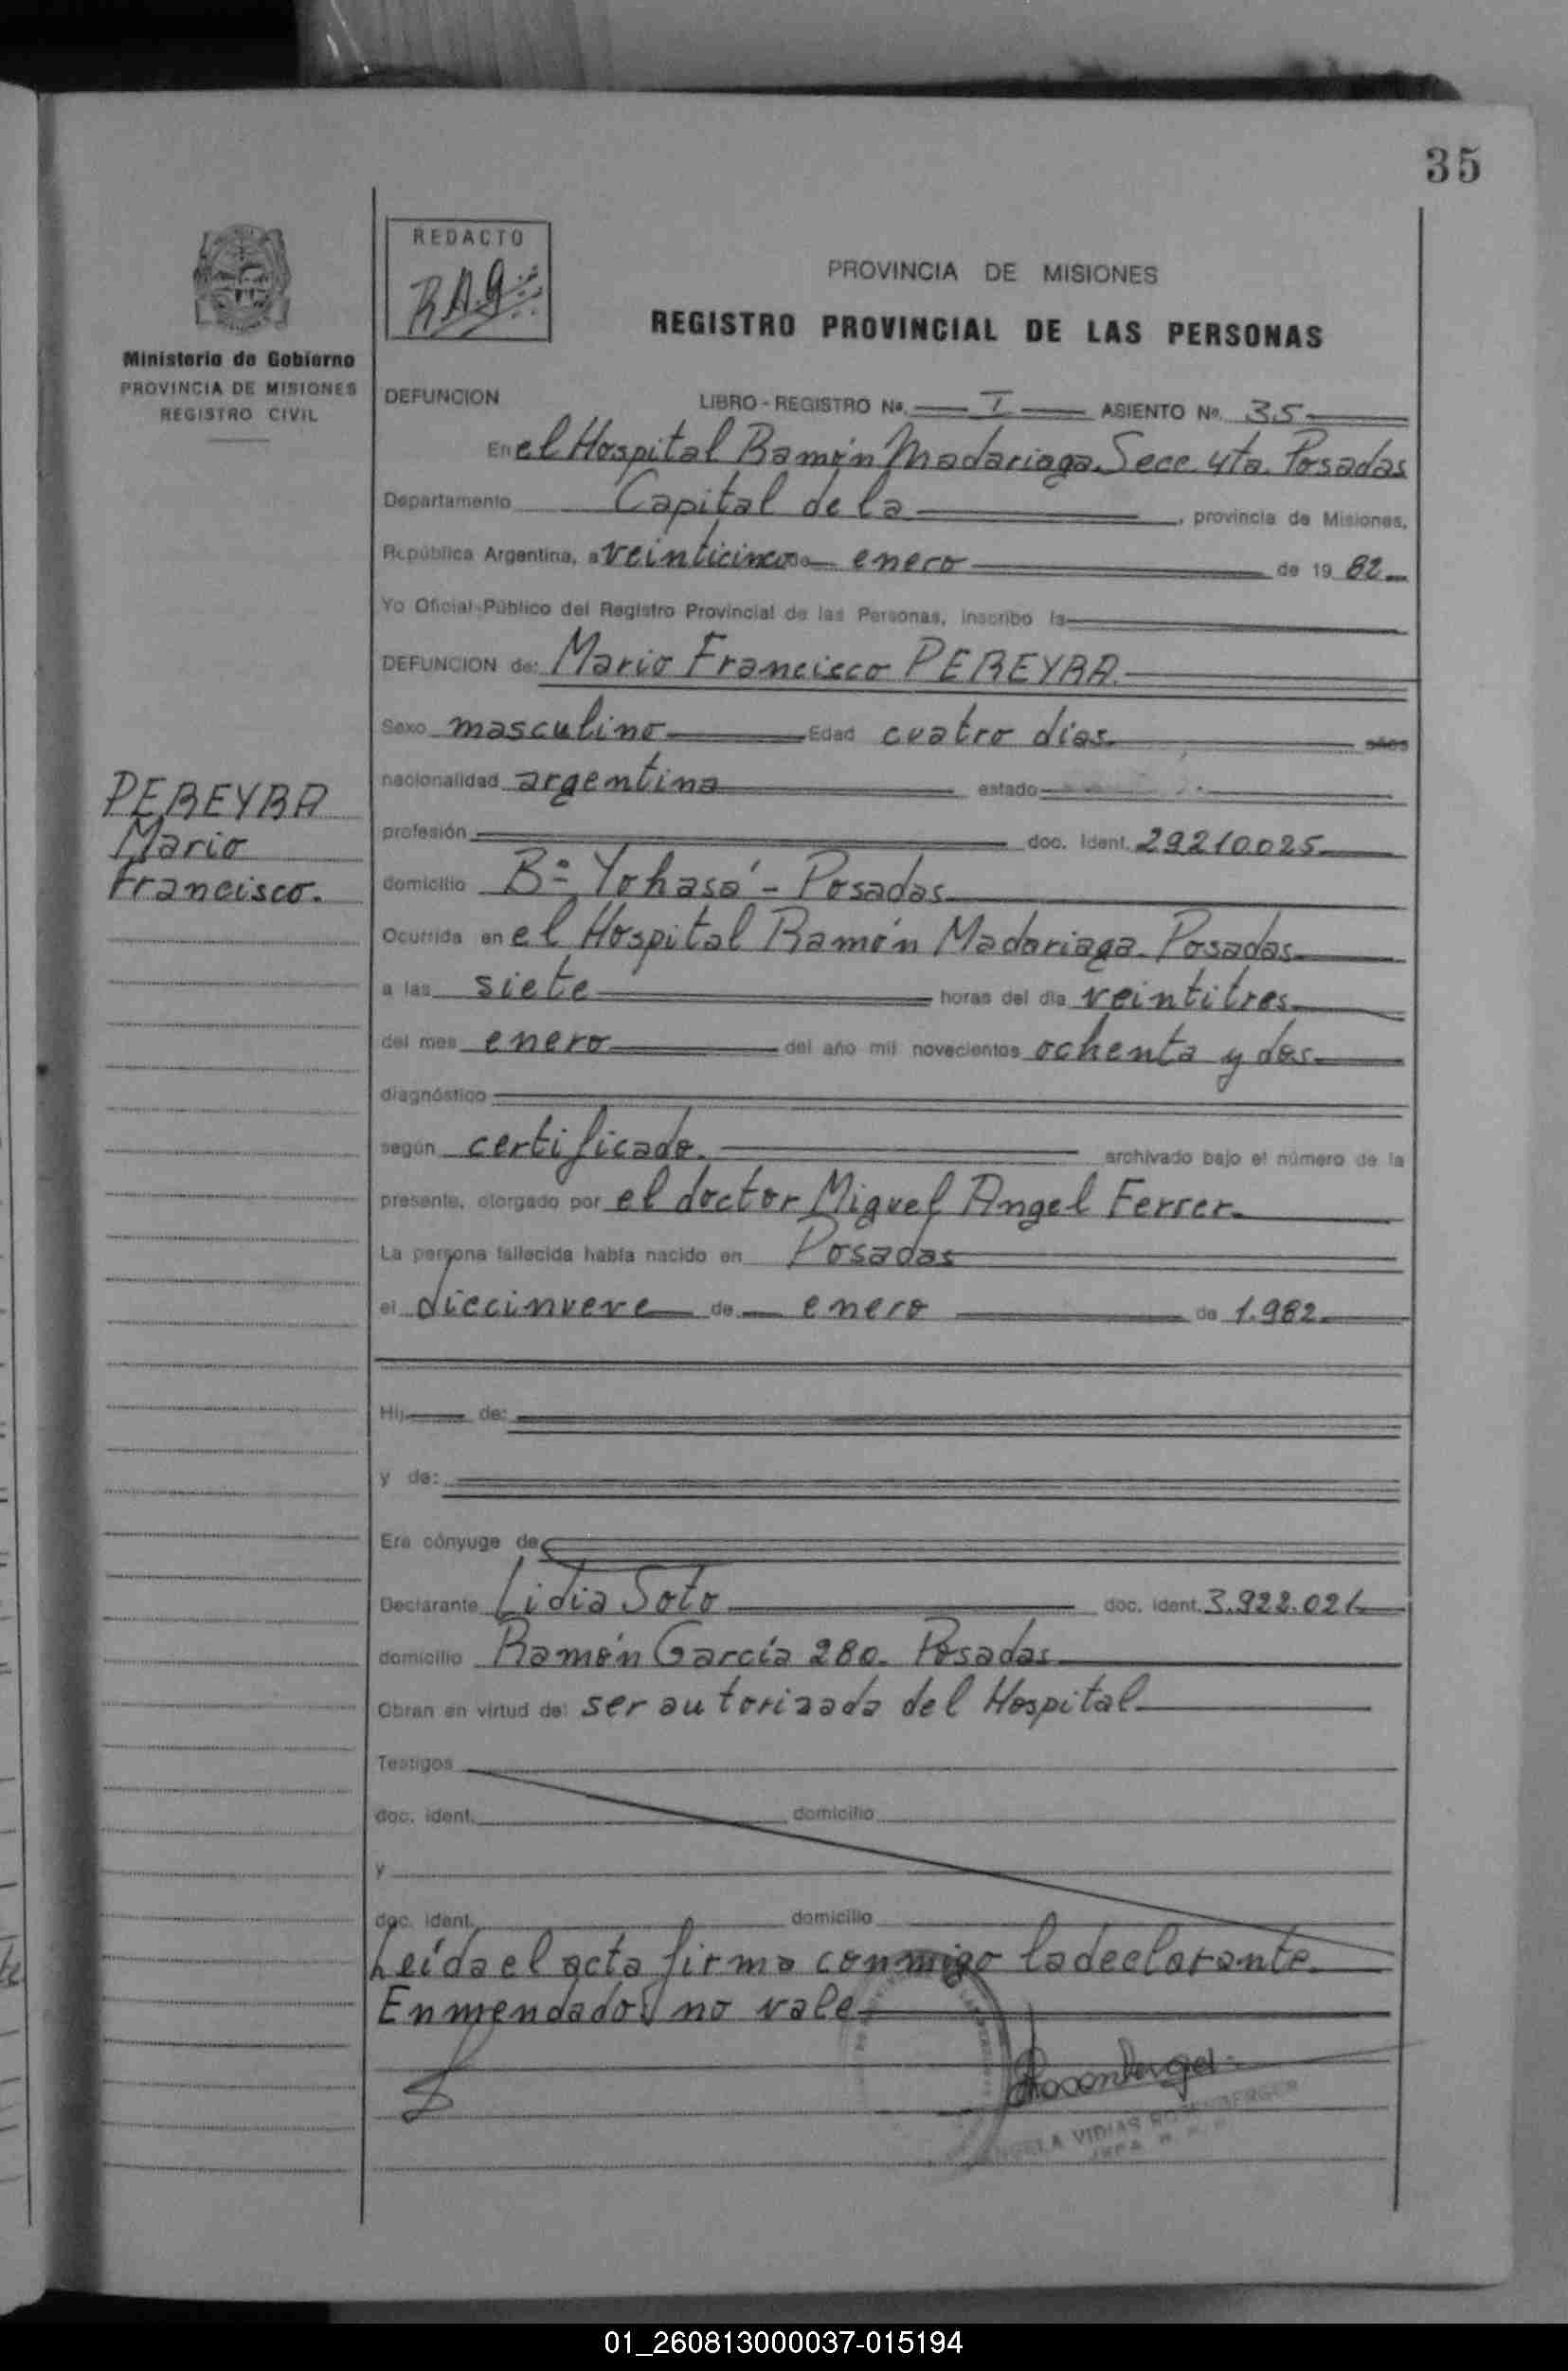 35
REDACTO
PROVINCIA DE MISIONES
REGISTRO PROVINCIAL DE LAS PERSONAS
Ministerio de Gobierno
PROVINCIA DE MISIONES
REGISTRO CIVIL
DEFUNCION LIBRO - REGISTRO Nº. I ASIENTO Nº. 35
En el Hospital Ramón Madariaga. Secc. 4ta. Posadas
Departamento Capital de la , provincia de Misiones,
República Argentina, a veinticinco de enero de 19 82
Yo Oficial Público del Registro Provincial de las Personas, inscribo la
DEFUNCION de: Mario Francisco PEREYRA.
Sexo masculino Edad cuatro días. años
nacionalidad argentina estado
PEREYRA
Mario
Francisco.
profesión doc. ident. 29210025
domicilio Bº Yohasá - Posadas
Ocurrida en el Hospital Ramón Madariaga. Posadas
a las siete horas del día veintitres
del mes enero del año mil novecientos ochenta y dos
diagnóstico
según certificado. archivado bajo el número de la
presente, otorgado por el doctor Miguel Angel Ferrer.
La persona fallecida había nacido en Posadas
el diecinueve de enero de 1.982
Hij de:
y de:
Era cónyuge de
Declarante Lidia Soto doc. ident. 3.922.021
domicilio Ramón García 280. Posadas
Obran en virtud de: ser autorizada del Hospital
Testigos
doc. ident. domicilio
y
doc. ident. domicilio
Leída el acta firma conmigo la declarante.
Enmendado: no vale
Rosenberger
ANGELA VIDIAS ROSENBERGER
01_260813000037-015194